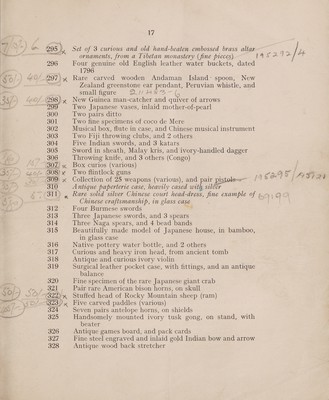 17
295 Set of 3 curious and old hand-beaten embossed brass altar
ornaments, from a Tibetan monastery (fine pieces)
296 Four genuine old English leather water buckets, dated
1796
297 Rare carved wooden Andaman Island spoon, New
Zealand greenstone ear pendant, Peruvian whistle, and
small figure
298 New Guinea man-catcher and quiver of arrows
299 Two Japanese vases, inlaid mother-of-pearl
300 Two pairs ditto
301 Two fine specimens of coco de Mere
302 Musical box, flute in case, and Chinese musical instrument
303 Two Fiji throwing clubs, and 2 others
304 Five Indian swords, and 3 katars
305 Sword in sheath, Malay kris, and ivory-handled dagger
306 Throwing knife, and 3 others (Congo)
307 Box curios (various)
308 Two flintlock guns
309 Collection of 25 weapons (various), and pair pistols
310 Antique papeterie case, heavily cased with silver
311 Rare solid silver Chinese court head-dress, fine example of
Chinese craftsmanship, in glass case
312 Four Burmese swords
313 Three Japanese swords, and 3 spears
314 Three Naga spears, and 4 bead bands
315 Beautifully made model of Japanese house, in bamboo,
in glass case
316 Native pottery water bottle, and 2 others
317 Curious and heavy iron head, from ancient tomb
318 Antique and curious ivory violin
319 Surgical leather pocket case, with fittings, and an antique
balance
320 Fine specimen of the rare Japanese giant crab
321 Pair rare American bison horns, on skull
322 Stuffed head of Rocky Mountain sheep (ram)
323 Five carved paddles (various)
324 Seven pairs antelope horns, on shields
325 Handsomely mounted ivory tusk gong, on stand, with
beater
326 Antique games board, and pack cards
327 Fine steel engraved and inlaid gold Indian bow and arrow
328 Antique wood back stretcher